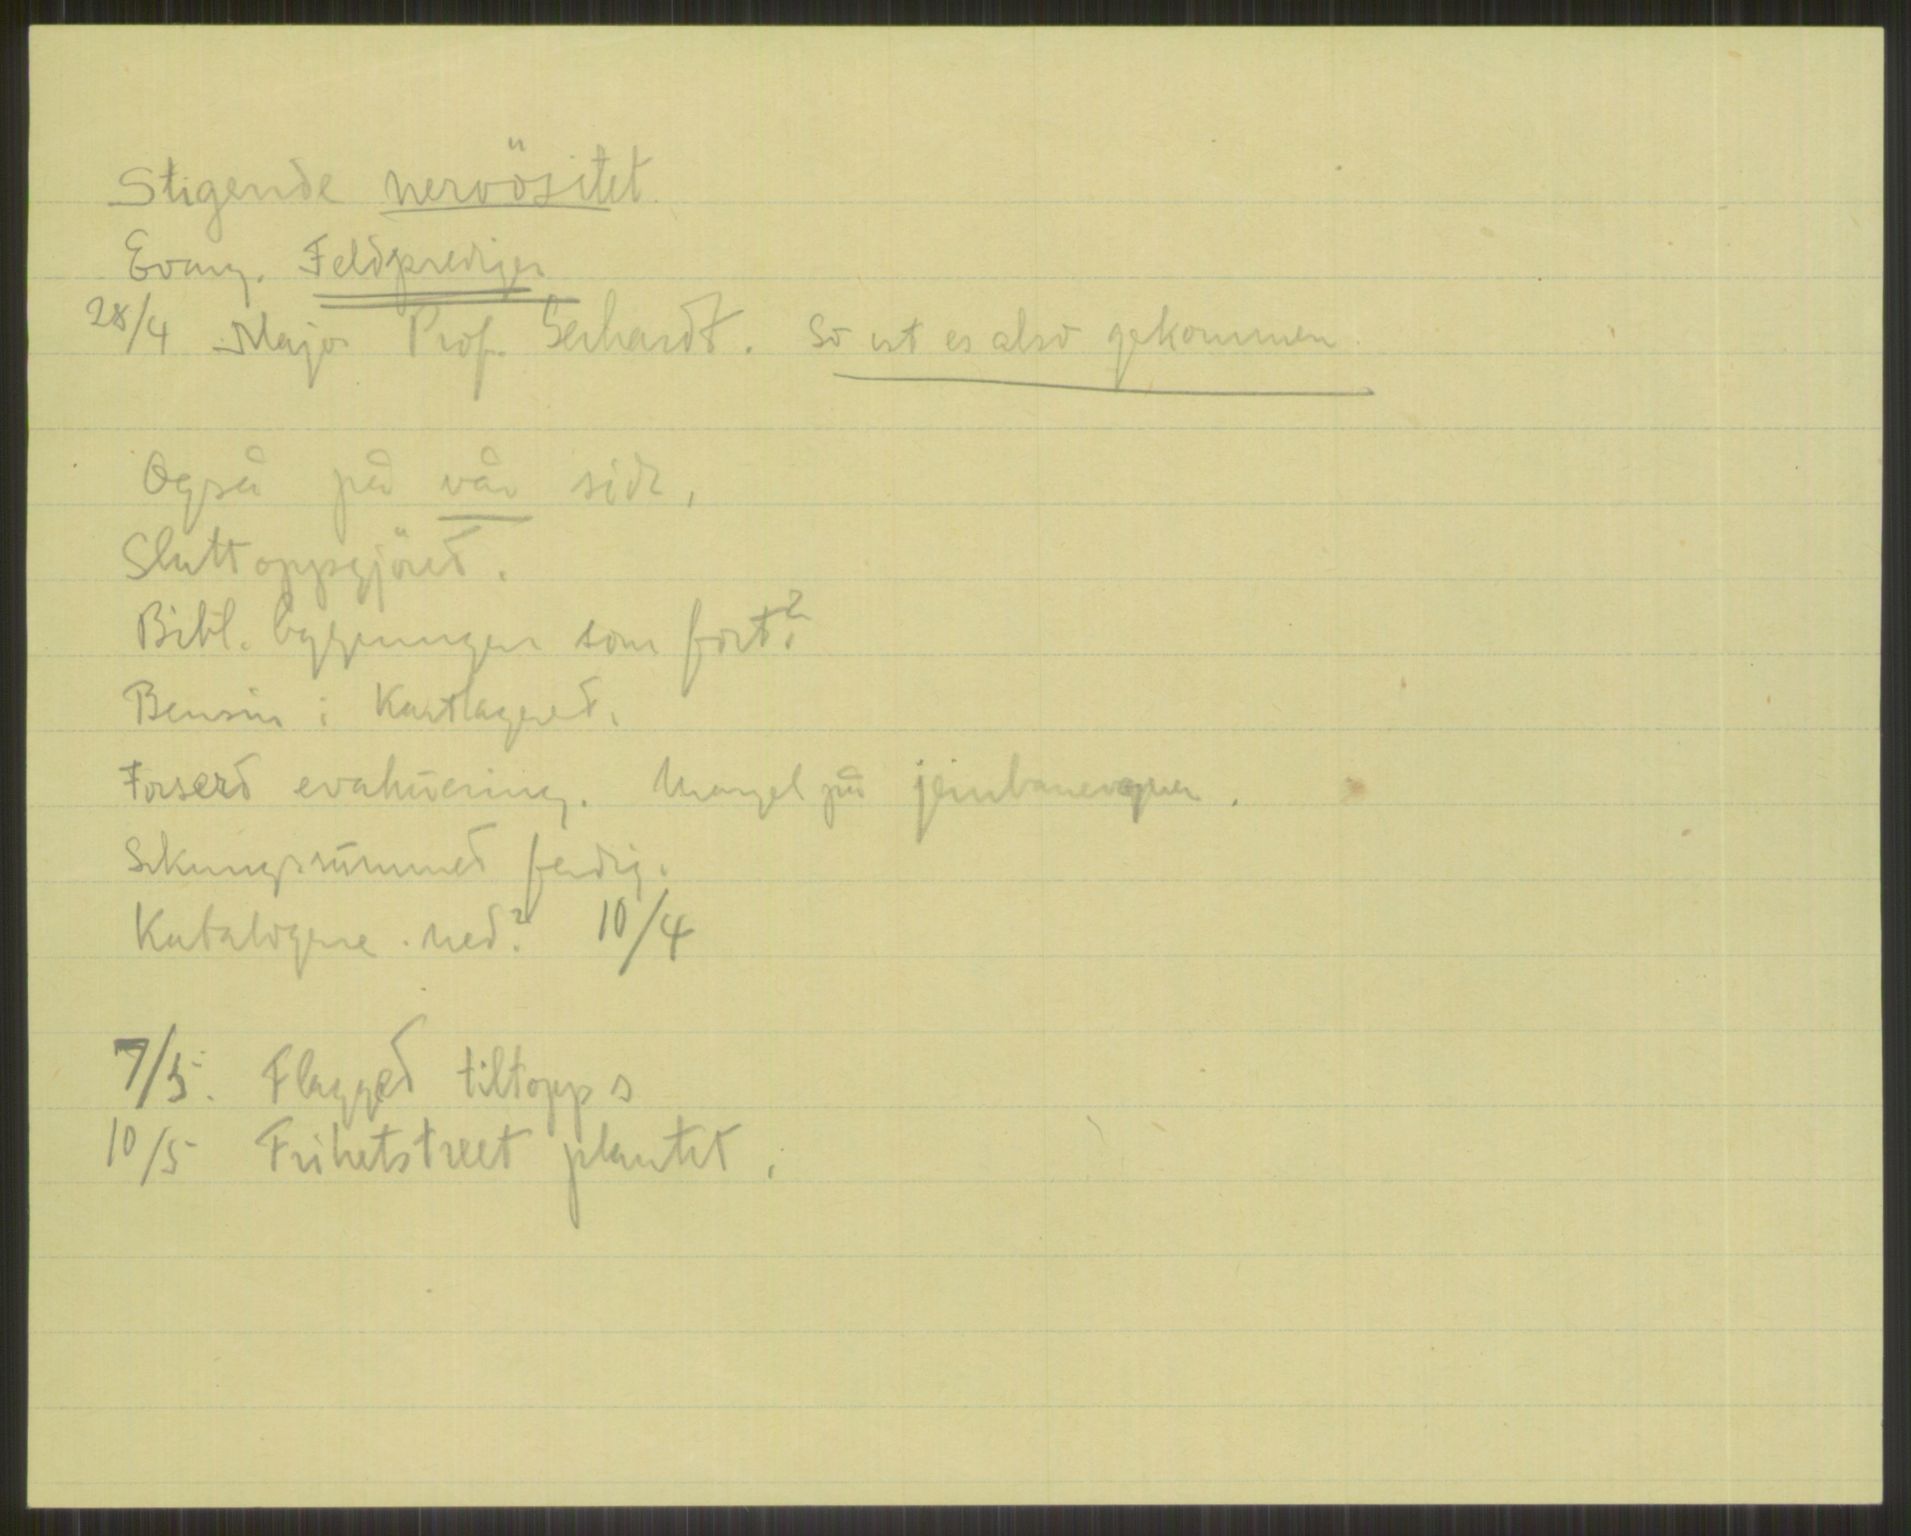 Stigende nervösitet.
Evang. Feldprediger
28/4 Major Prof. Gerhardt. So ist es also gekommen.
Også på vår side.
Sluttoppgjöret.
Bibl. bygningen som fort?
Bensin i Kartlageret.
Forsert evakuering. Mangel på jernbanevogner.
Sikringsrummet ferdig.
Katalogene ned? 10/4
7/5. Flagget tiltopps
10/5 Frihetstreet plantet.